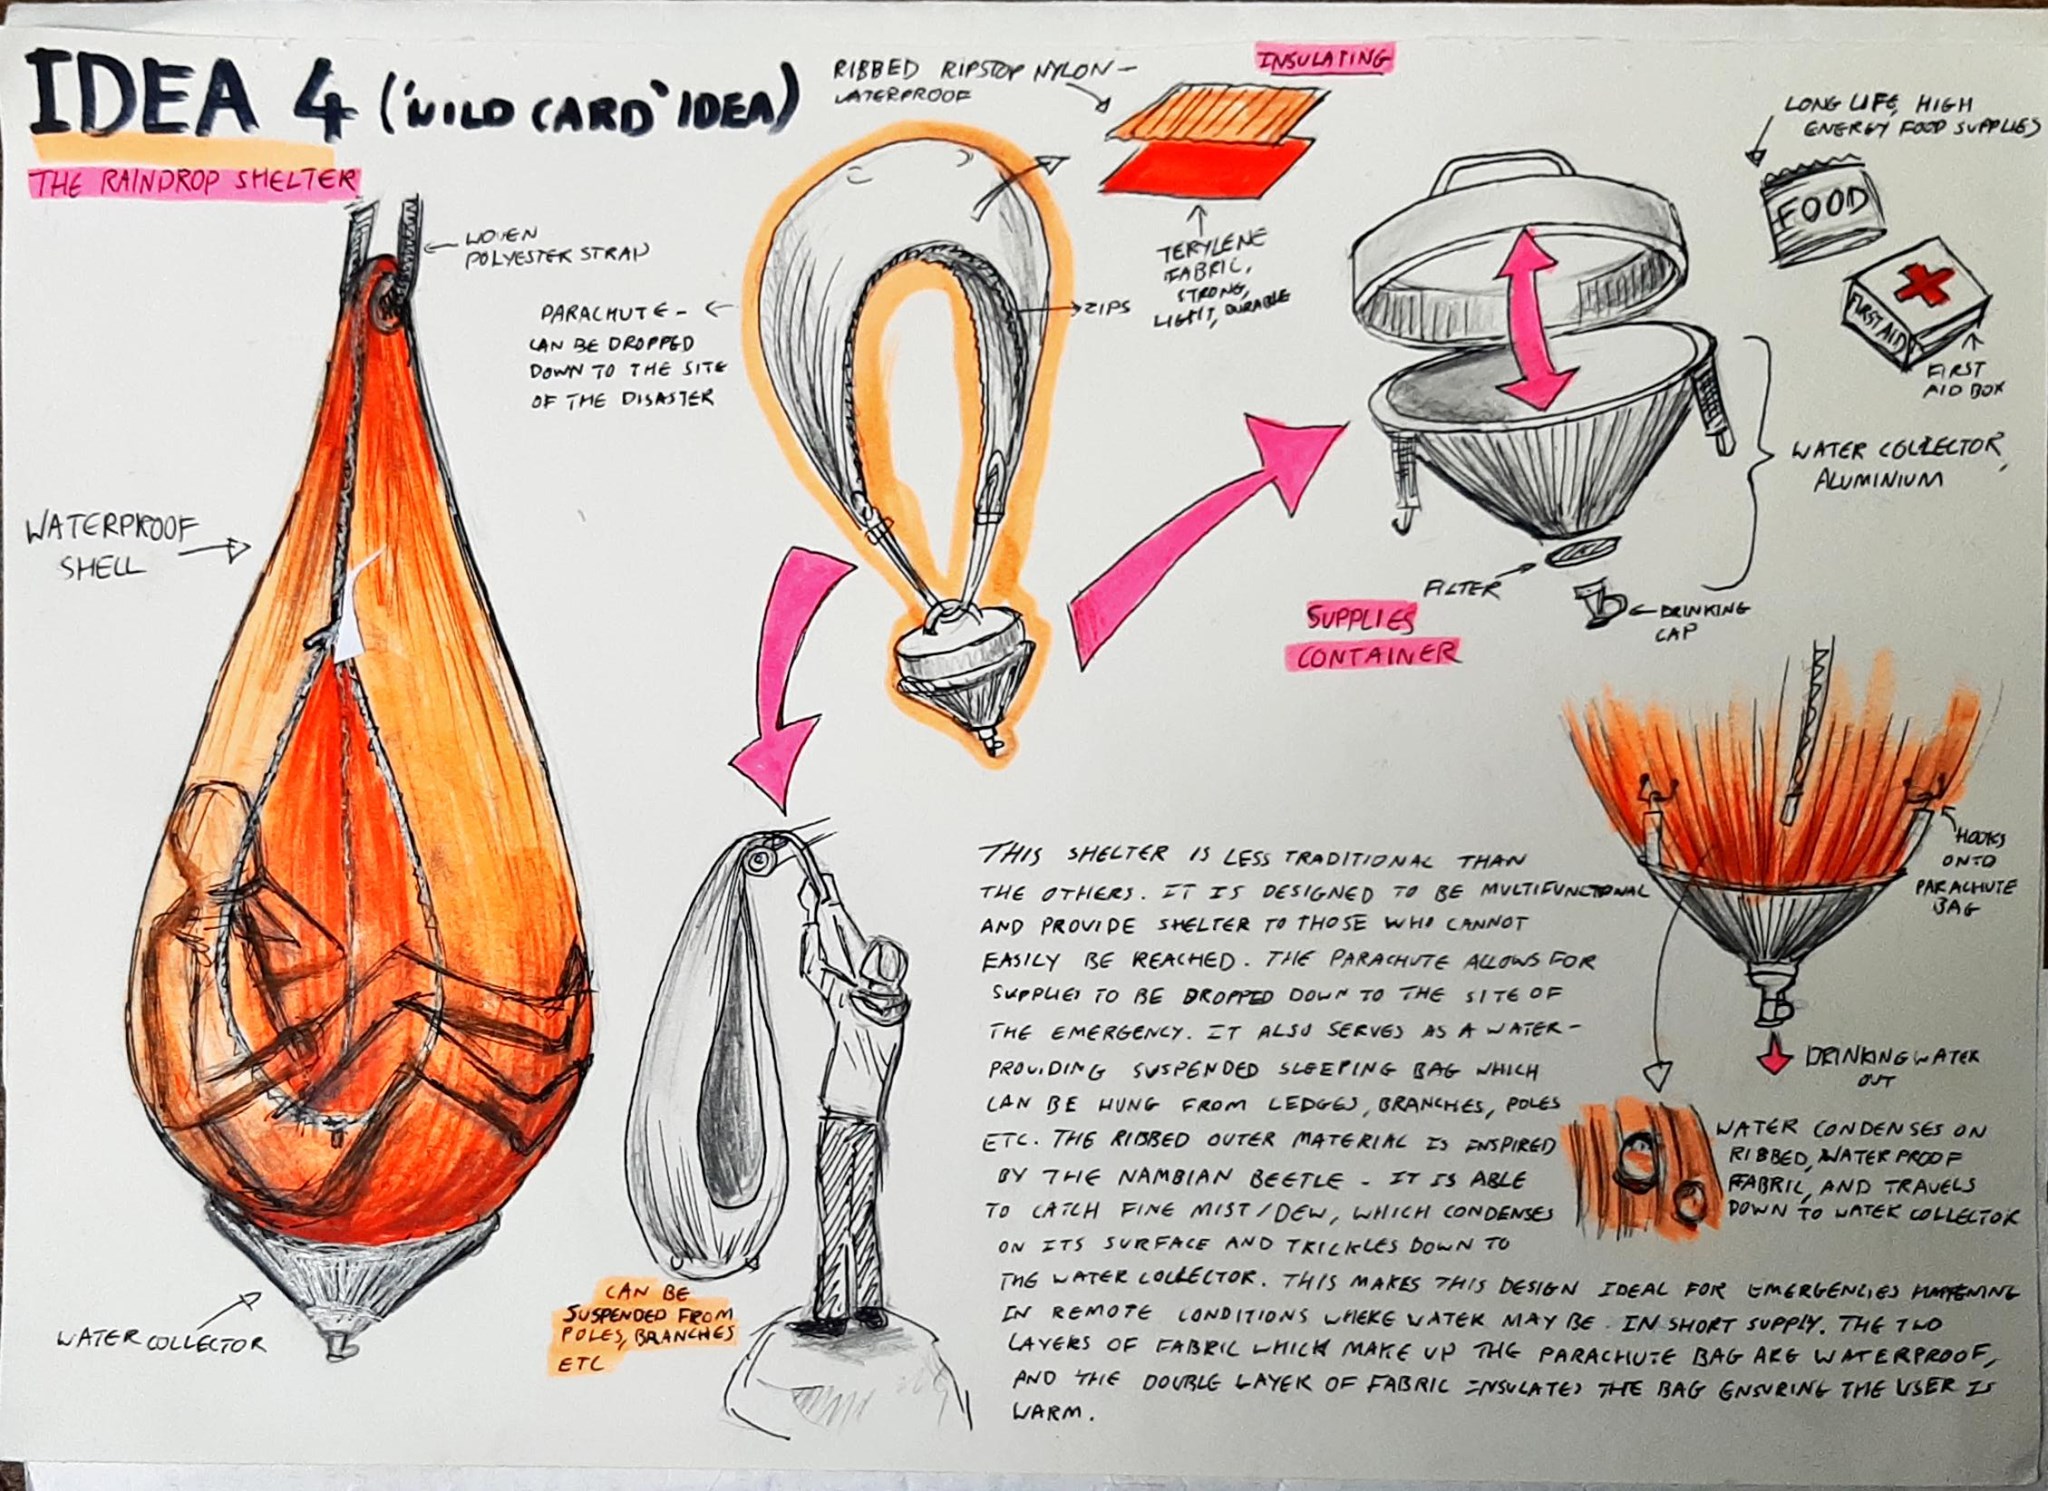 IDEA 4 ('WILD CARD' IDEA)
THE RAINDROP SHELTER
WOVEN
POLYESTER STRAP
WATERPROOF
SHELL
WATER COLLECTOR
PARACHUTE -
CAN BE DROPPED
DOWN TO THE SITE
OF THE DISASTER
ZIPS
RIBBED RIPSTOP NYLON -
WATERPROOF
INSULATING
TERYLENE
FABRIC,
STRONG,
LIGHT, DURABLE
LONG LIFE, HIGH
ENERGY FOOD SUPPLIES
FOOD
FIRST AID
FIRST
AID BOX
WATER COLLECTOR,
ALUMINIUM
FILTER
DRINKING
CAP
SUPPLIES
CONTAINER
HOOKS
ONTO
PARACHUTE
BAG
DRINKING WATER
OUT
WATER CONDENSES ON
RIBBED, WATERPROOF
FABRIC, AND TRAVELS
DOWN TO WATER COLLECTOR
CAN BE
SUSPENDED FROM
POLES, BRANCHES
ETC
THIS SHELTER IS LESS TRADITIONAL THAN
THE OTHERS. IT IS DESIGNED TO BE MULTIFUNCTIONAL
AND PROVIDE SHELTER TO THOSE WHO CANNOT
EASILY BE REACHED. THE PARACHUTE ALLOWS FOR
SUPPLIES TO BE DROPPED DOWN TO THE SITE OF
THE EMERGENCY. IT ALSO SERVES AS A WATER-
PROVIDING SUSPENDED SLEEPING BAG WHICH
CAN BE HUNG FROM LEDGES, BRANCHES, POLES
ETC. THE RIBBED OUTER MATERIAL IS INSPIRED
BY THE NAMBIAN BEETLE - IT IS ABLE
TO CATCH FINE MIST/DEW, WHICH CONDENSES
ON ITS SURFACE AND TRICKLES DOWN TO
THE WATER COLLECTOR. THIS MAKES THIS DESIGN IDEAL FOR EMERGENCIES HAPPENING
IN REMOTE CONDITIONS WHERE WATER MAY BE IN SHORT SUPPLY. THE TWO
LAYERS OF FABRIC WHICH MAKE UP THE PARACHUTE BAG ARE WATERPROOF,
AND THE DOUBLE LAYER OF FABRIC INSULATES THE BAG ENSURING THE USER IS
WARM.